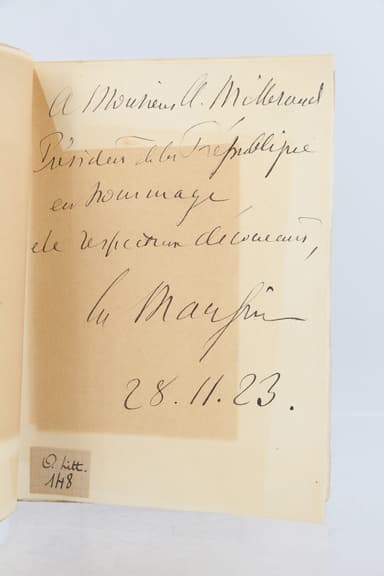 A Monsieur A. Millerand
Président de la République
en hommage
de respectueux dévouement,
Mangin
28.11.23.
O. Litt.
148